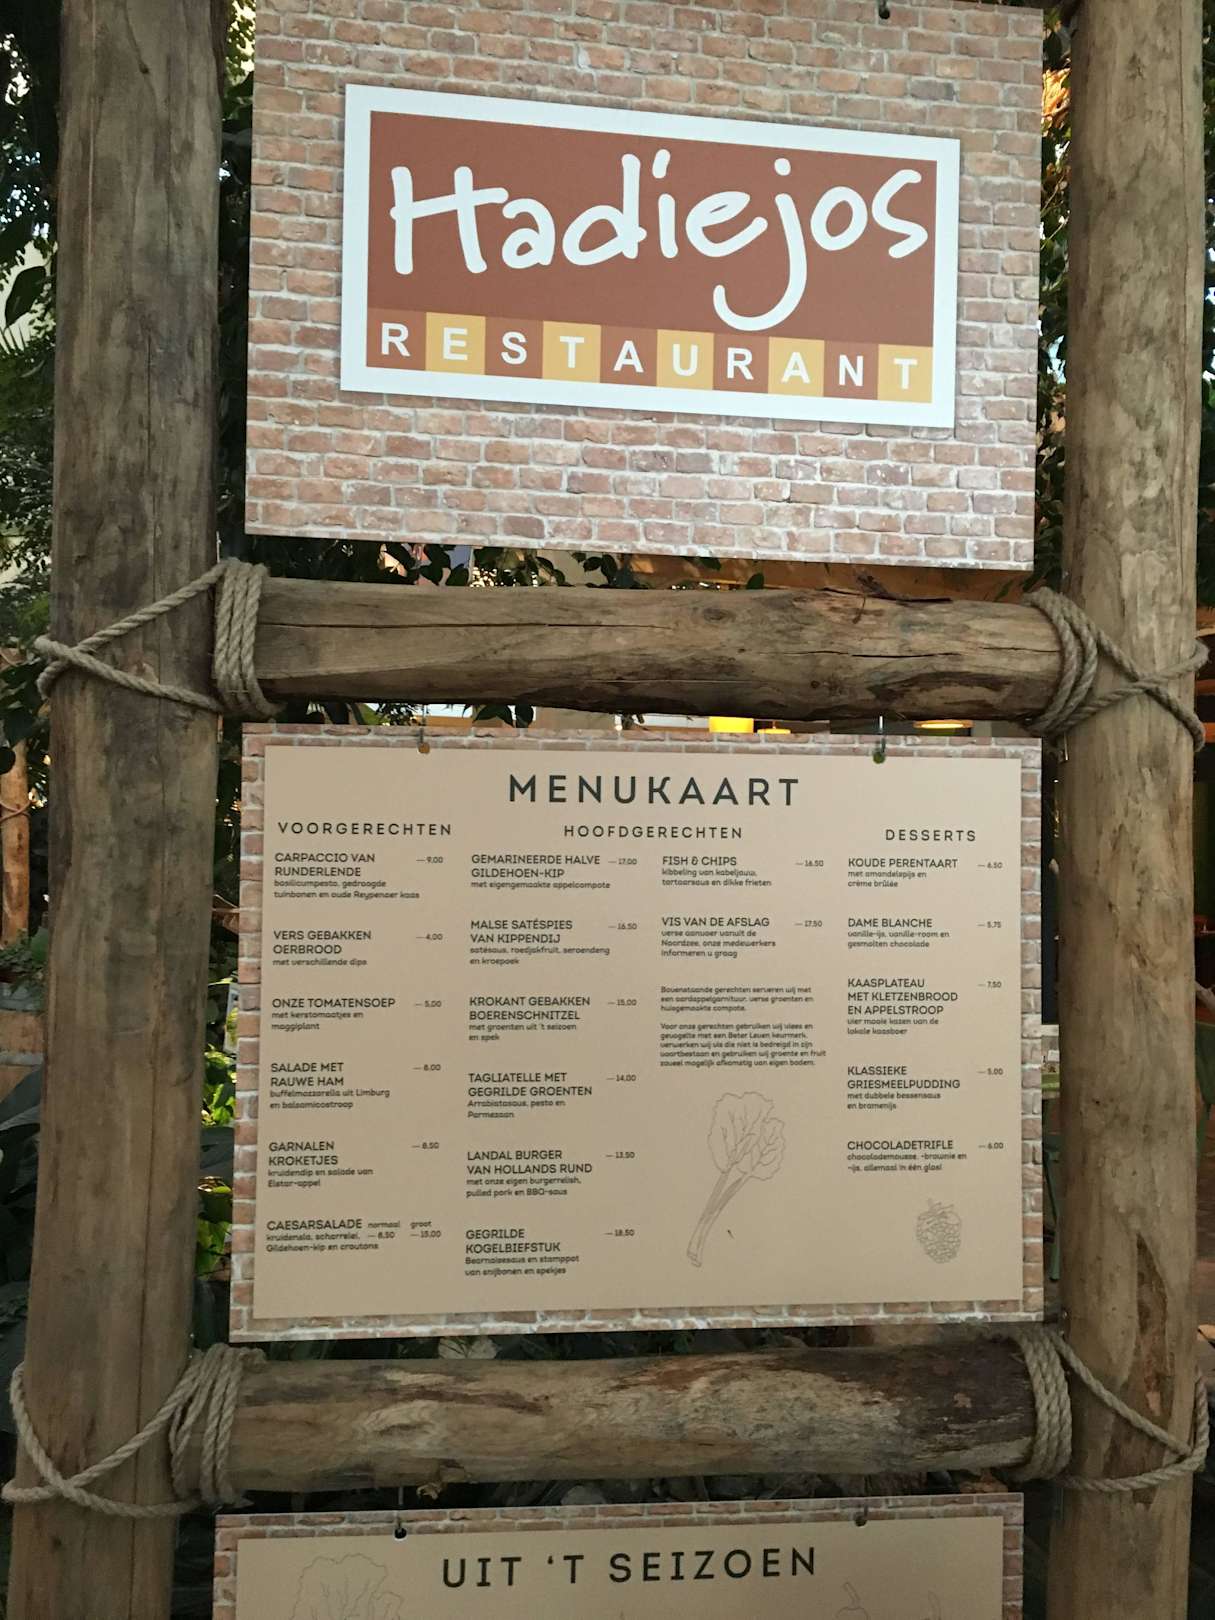 Hadiejos
RESTAURANT
MENUKAART
VOORGERECHTEN
CARPACCIO VAN — 9,00
RUNDERLENDE
basilicumpesto, gedroogde
tuinbonen en oude Reypenaer kaas
VERS GEBAKKEN — 4,00
OERBROOD
met verschillende dips
ONZE TOMATENSOEP — 5,00
met kerstomaatjes en
maggiplant
SALADE MET — 8,00
RAUWE HAM
buffelmozzarella uit Limburg
en balsamicostroop
GARNALEN — 8,50
KROKETJES
kruidendip en salade van
Elstar-appel
CAESARSALADE normaal groot
kruidensla, scharrelei, — 8,50 — 15,00
Gildehoen-kip en croutons
HOOFDGERECHTEN
GEMARINEERDE HALVE — 17,00
GILDEHOEN-KIP
met eigengemaakte appelcompote
MALSE SATÉSPIES — 16,50
VAN KIPPENDIJ
satésaus, roedjakfruit, seroendeng
en kroepoek
KROKANT GEBAKKEN — 15,00
BOERENSCHNITZEL
met groenten uit 't seizoen
en spek
TAGLIATELLE MET — 14,00
GEGRILDE GROENTEN
Arrabiatasaus, pesto en
Parmezaan
LANDAL BURGER — 13,50
VAN HOLLANDS RUND
met onze eigen burgerrelish,
pulled pork en BBQ-saus
GEGRILDE — 18,50
KOGELBIEFSTUK
Bearnaisesaus en stamppot
van snijbonen en spekjes
FISH & CHIPS — 16,50
kibbeling van kabeljauw,
tartaarsaus en dikke frieten
VIS VAN DE AFSLAG — 17,50
verse aanvoer vanuit de
Noordzee, onze medewerkers
informeren u graag
Bovenstaande gerechten serveren wij met
een aardappelgarnituur, verse groenten en
huisgemaakte compote.
Voor onze gerechten gebruiken wij vlees en
gevogelte met een Beter Leven keurmerk,
verwerken wij vis die niet is bedreigd in zijn
voortbestaan en gebruiken wij groente en fruit
zoveel mogelijk afkomstig van eigen bodem.
DESSERTS
KOUDE PERENTAART — 6,50
met amandelspijs en
crème brûlée
DAME BLANCHE — 5,75
vanille-ijs, vanille-room en
gesmolten chocolade
KAASPLATEAU — 7,50
MET KLETZENBROOD
EN APPELSTROOP
vier mooie kazen van de
lokale kaasboer
KLASSIEKE — 5,00
GRIESMEELPUDDING
met dubbele bessensaus
en bramenijs
CHOCOLADETRIFLE — 6,00
chocolademousse, -brownie en
-ijs, allemaal in één glas!
UIT 'T SEIZOEN